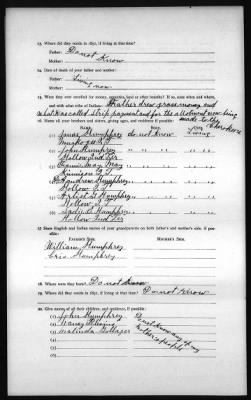 13. Where did they reside in 1851, if living at that time?
Father: Do not
Mother: Know
14. Date of death of your father and mother:
Father: Living now
Mother:
15. Were they ever enrolled for money, annuities, land or other benefits? If so, state when and where,
and with what tribe of Indians: Father drew grass money and
what was called strip payment and for the allotment now being
made to the Cherokees
16. Name all your brothers and sisters, giving ages, and residence if possible:
Name.
(1) Humphrey do not know Living
Muskogee
(2) John Humphrey
Hollow Ind. Ter.
(3) Fannie May May
(4) Andrew Humphrey
Hollow I.T.
(5) Humphrey
Hollow
(6) Humphrey
Hollow Ind Ter
17. State English and Indian names of your grandparents on both father's and mother's side, if possible:
Father's Side. Mother's Side.
William Humphrey
Cris Humphrey
18. Where were they born? Do not know
19. Where did they reside in 1851, if living at that time? Do not know
20. Give names of all their children, and residence, if possible:
(1) John Humphrey
(2) Nancy
(3) Malinda
Do not know any of my
mother's people